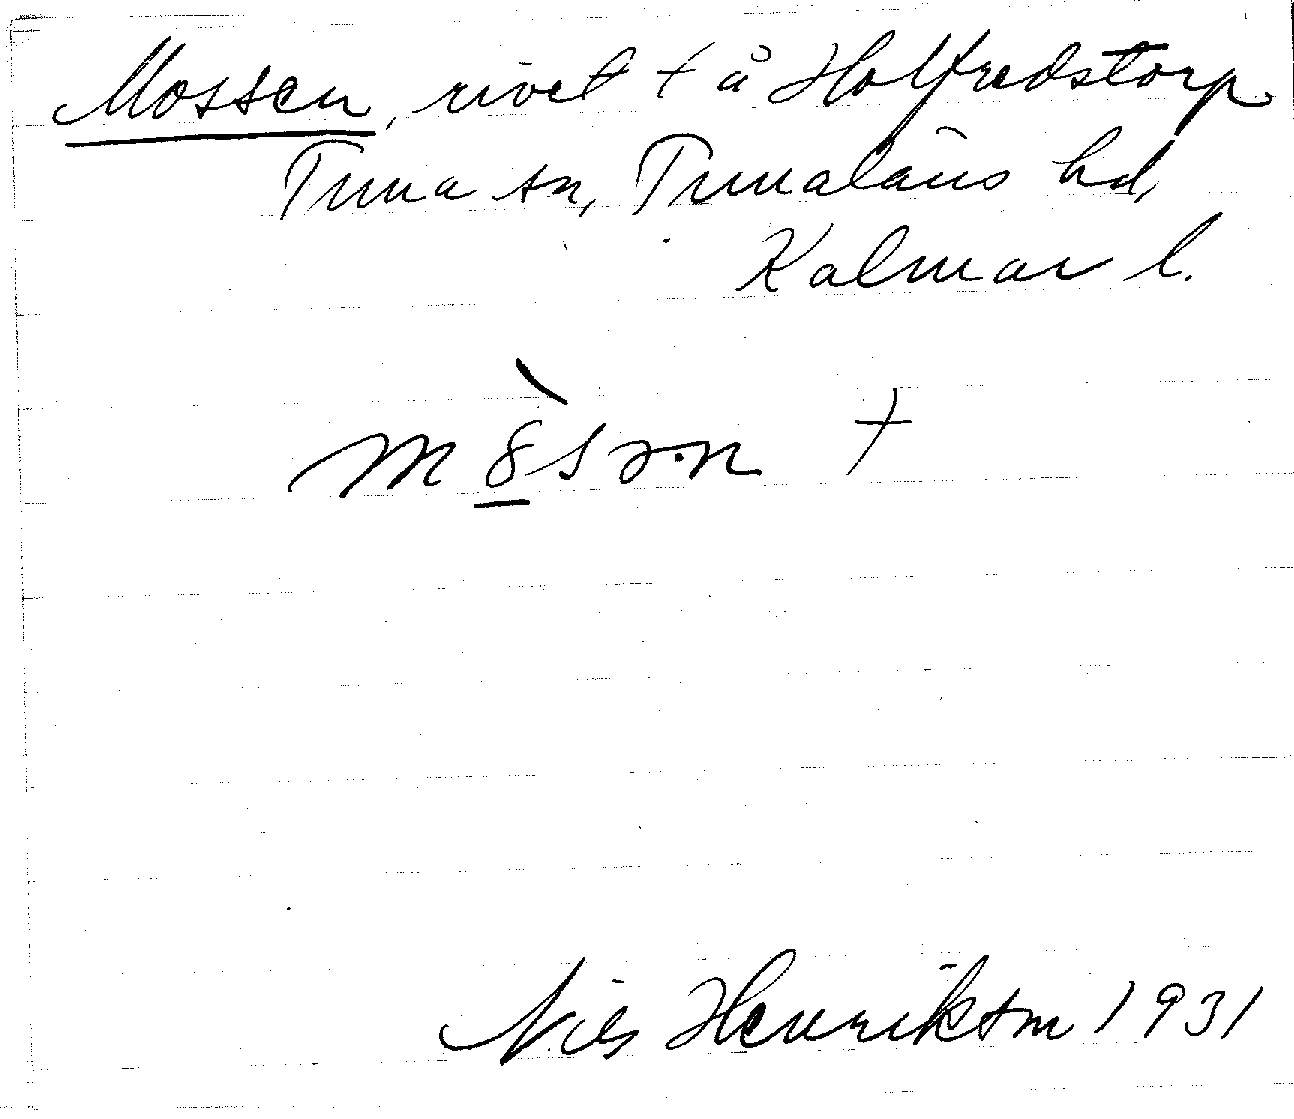 Mossen, rivet t å Holfredstorp
Tuna sn, Tunaläns hd,
Kalmar l.
†
Nils Henrikson 1931